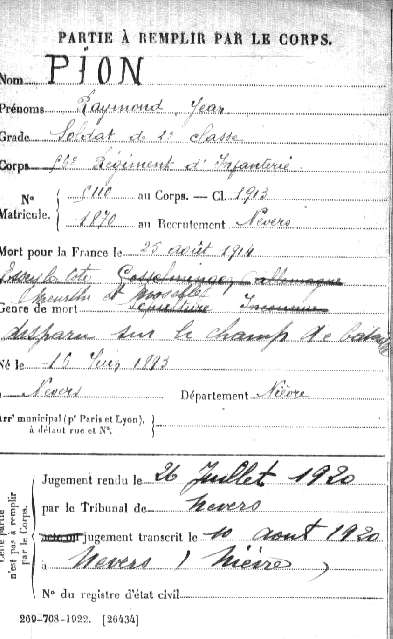 PARTIE À REMPLIR PAR LE CORPS.
Nom PION
Prénoms Raymond Jean
Grade Soldat de 2e Classe
Corps Régiment d'Infanterie
N° Matricule. { au Corps. — Cl. 1913
1870 au Recrutement Nevers
Mort pour la France le 25 août 1914
Meurthe et Moselle
Genre de mort
disparu sur le champ de bataille
Né le 1893
à Nevers Département Nièvre
Arr' municipal (p' Paris et Lyon),
à défaut rue et N°.
Cette partie n'est pas à remplir par le Corps.
Jugement rendu le 26 Juillet 1920
par le Tribunal de Nevers
acte ou jugement transcrit le 10 août 1920
à Nevers (Nièvre)
N° du registre d'état civil
269-708-1922. [26434]